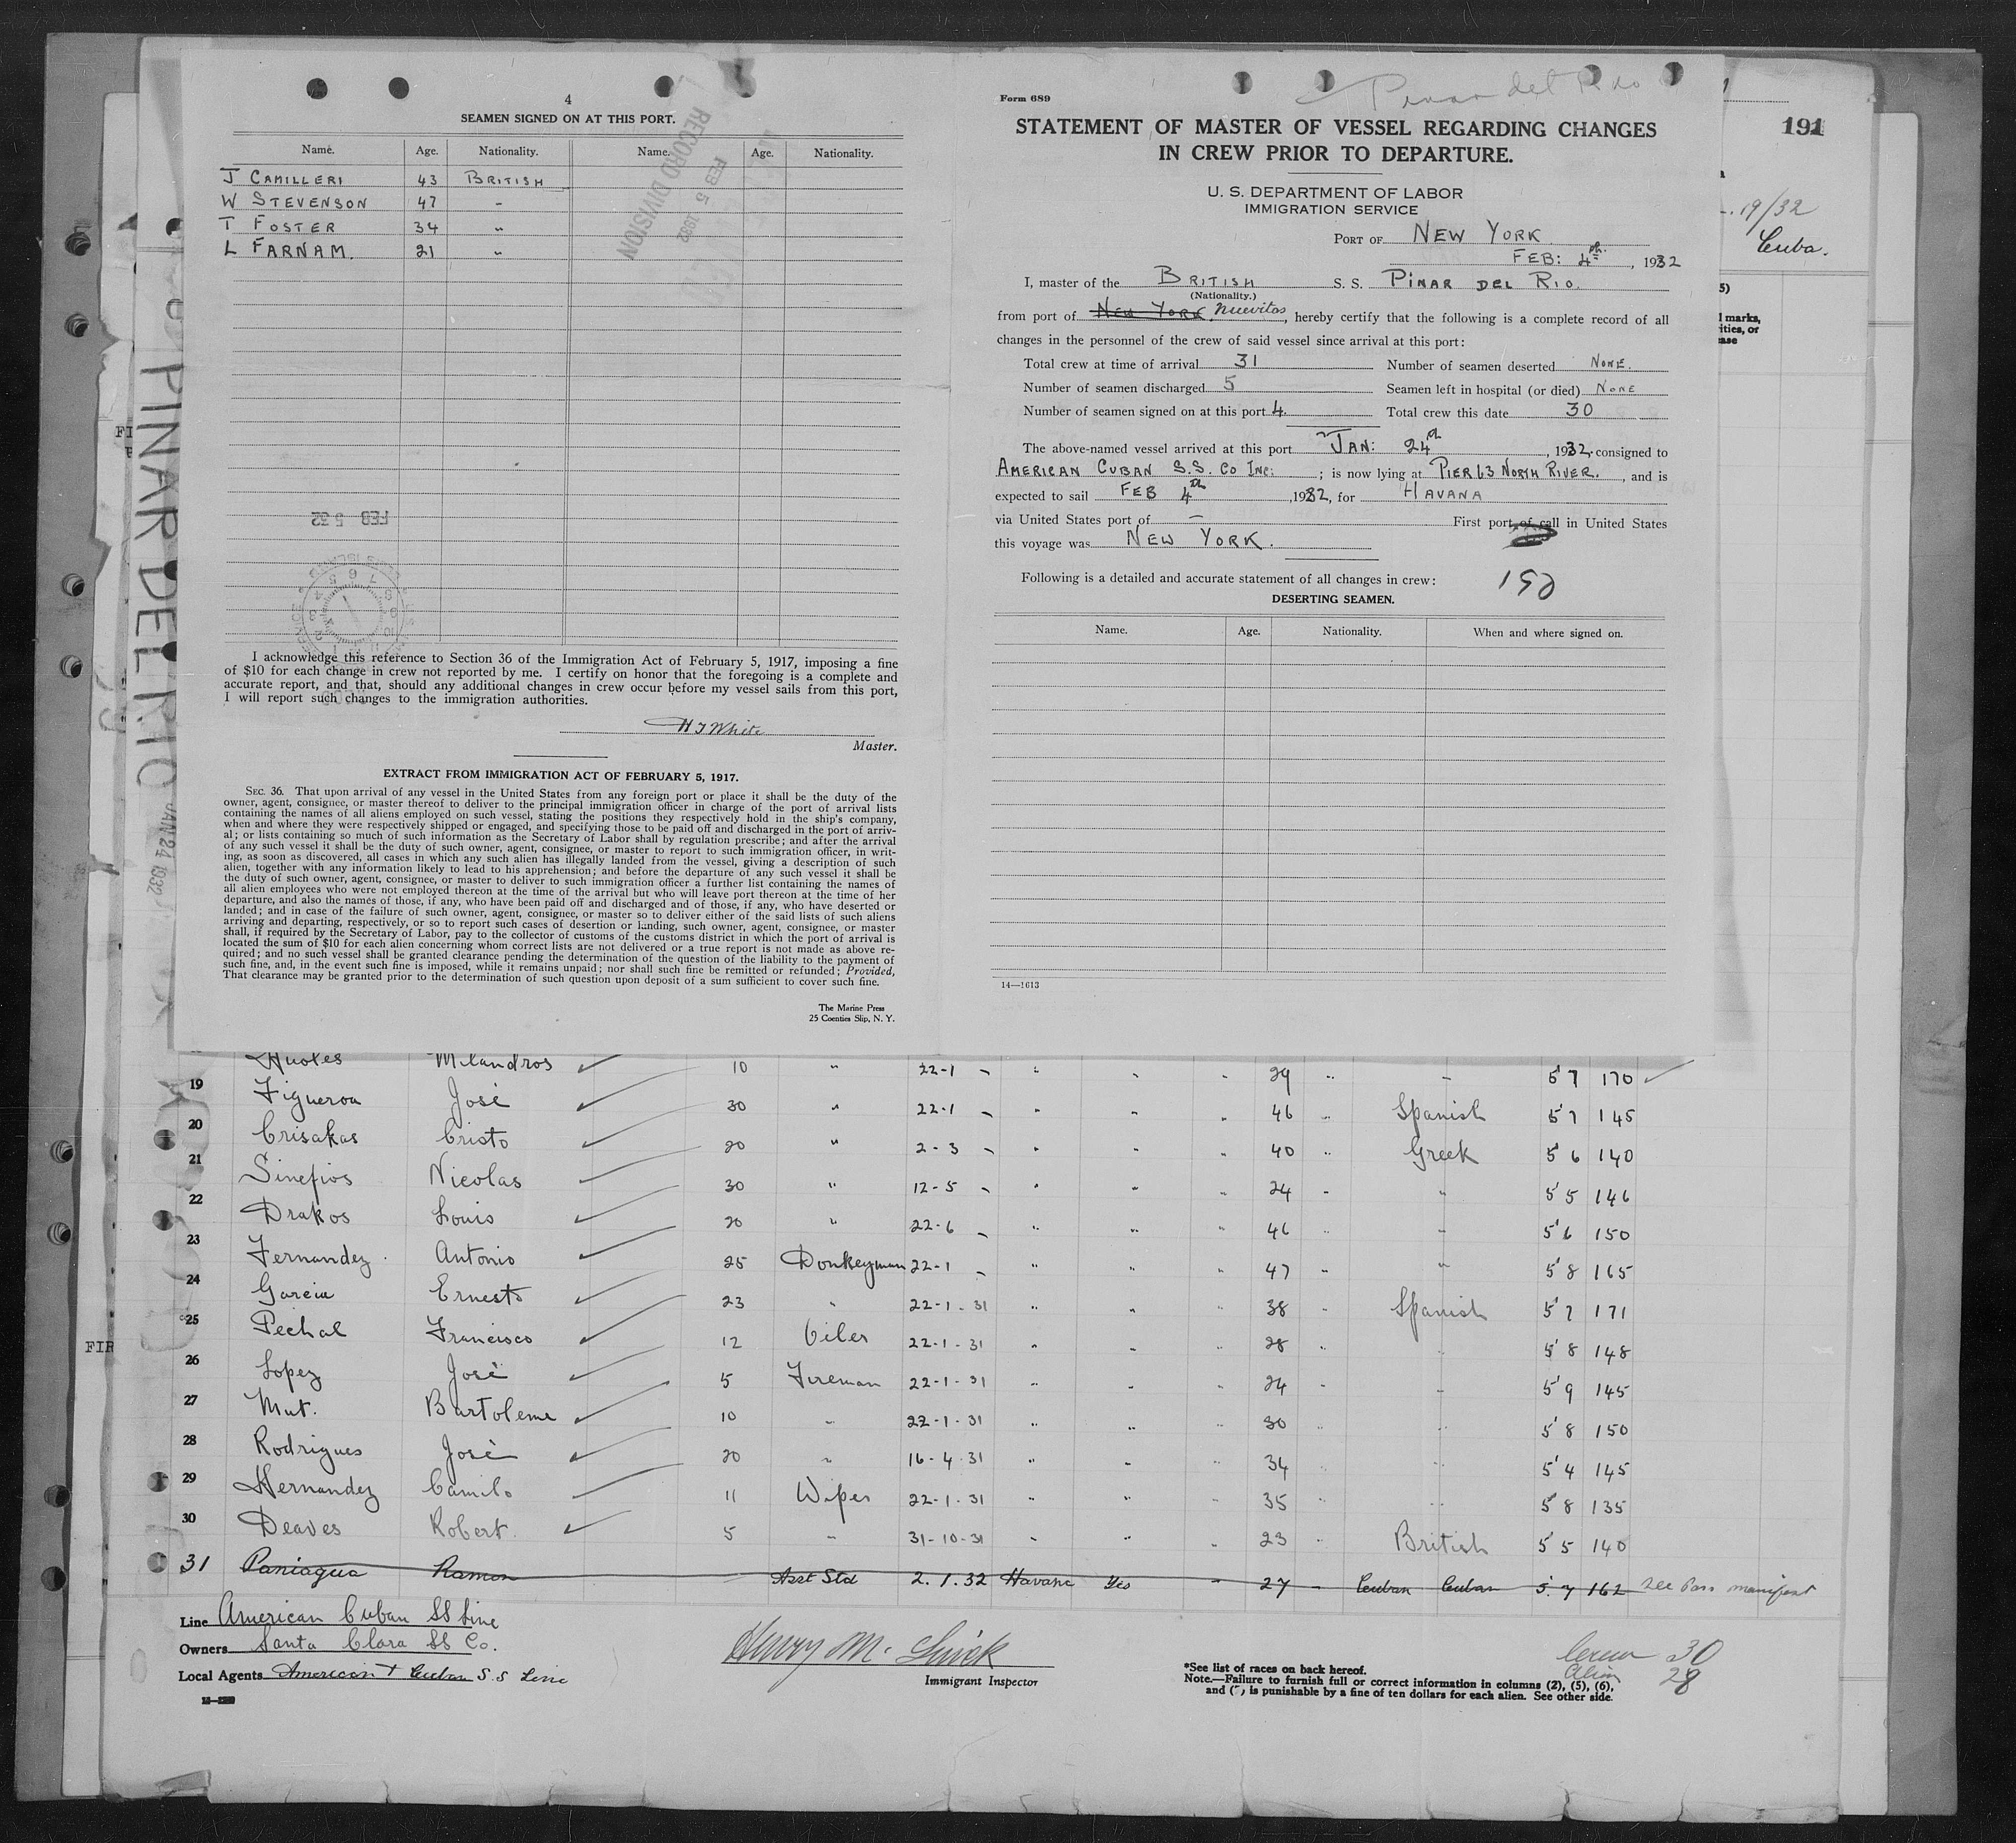 4
SEAMEN SIGNED ON AT THIS PORT.
Name. Age. Nationality. Name. Age. Nationality.
J CAMILLERI 43 BRITISH
W STEVENSON 47 -
T FOSTER 34 "
L FARNAM. 21 "
RECORD DIVISION
FEB 5 1932
FEB 5 32
I acknowledge this reference to Section 36 of the Immigration Act of February 5, 1917, imposing a fine
of $10 for each change in crew not reported by me. I certify on honor that the foregoing is a complete and
accurate report, and that, should any additional changes in crew occur before my vessel sails from this port,
I will report such changes to the immigration authorities.
H J White
Master.
EXTRACT FROM IMMIGRATION ACT OF FEBRUARY 5, 1917.
SEC. 36. That upon arrival of any vessel in the United States from any foreign port or place it shall be the duty of the
owner, agent, consignee, or master thereof to deliver to the principal immigration officer in charge of the port of arrival lists
containing the names of all aliens employed on such vessel, stating the positions they respectively hold in the ship's company,
when and where they were respectively shipped or engaged, and specifying those to be paid off and discharged in the port of arriv-
al; or lists containing so much of such information as the Secretary of Labor shall by regulation prescribe; and after the arrival
of any such vessel it shall be the duty of such owner, agent, consignee, or master to report to such immigration officer, in writ-
ing, as soon as discovered, all cases in which any such alien has illegally landed from the vessel, giving a description of such
alien, together with any information likely to lead to his apprehension; and before the departure of any such vessel it shall be
the duty of such owner, agent, consignee, or master to deliver to such immigration officer a further list containing the names of
all alien employees who were not employed thereon at the time of the arrival but who will leave port thereon at the time of her
departure, and also the names of those, if any, who have been paid off and discharged and of those, if any, who have deserted or
landed; and in case of the failure of such owner, agent, consignee, or master so to deliver either of the said lists of such aliens
arriving and departing, respectively, or so to report such cases of desertion or landing, such owner, agent, consignee, or master
shall, if required by the Secretary of Labor, pay to the collector of customs of the customs district in which the port of arrival is
located the sum of $10 for each alien concerning whom correct lists are not delivered or a true report is not made as above re-
quired; and no such vessel shall be granted clearance pending the determination of the question of the liability to the payment of
such fine, and, in the event such fine is imposed, while it remains unpaid; nor shall such fine be remitted or refunded; Provided,
That clearance may be granted prior to the determination of such question upon deposit of a sum sufficient to cover such fine.
The Marine Press
25 Coenties Slip, N. Y.
PINAR DEL RIO
JAN 24 1932
Form 689
Pinar del Rio
STATEMENT OF MASTER OF VESSEL REGARDING CHANGES
IN CREW PRIOR TO DEPARTURE.
U. S. DEPARTMENT OF LABOR
IMMIGRATION SERVICE
PORT OF NEW YORK
FEB: 4th, 1932
I, master of the BRITISH S. S. PINAR DEL RIO.
(Nationality.)
from port of New York Nuevitas, hereby certify that the following is a complete record of all
changes in the personnel of the crew of said vessel since arrival at this port:
Total crew at time of arrival 31 Number of seamen deserted NONE.
Number of seamen discharged 5 Seamen left in hospital (or died) NONE
Number of seamen signed on at this port 4 Total crew this date 30
The above-named vessel arrived at this port JAN: 24th, 1932, consigned to
AMERICAN CUBAN S.S. CO INC: ; is now lying at PIER 63 NORTH RIVER., and is
expected to sail FEB 4th, 1932, for HAVANA
via United States port of - First port of call in United States
this voyage was NEW YORK.
Following is a detailed and accurate statement of all changes in crew: 190
DESERTING SEAMEN.
Name. Age. Nationality. When and where signed on.
14—1613
191
19/32
Cuba.
5)
l marks,
ities, or
ase
FIR
Milandros 10 " 22-1 - " " " 29 " - 5 7 170
19 Figueroa José 30 " 22-1 - " " " 46 " Spanish 5 7 145
20 Crisakas Cristo 20 " 2-3 - " " " 40 " Greek 5 6 140
21 Sinefios Nicolas 30 " 12-5 - " " " 24 " " 5 5 146
22 Drakos Louis 20 " 22-6 - " " " 46 " - 5 6 150
23 Fernandez Antonio 25 Donkeyman 22-1 - " " " 47 " " 5 8 165
24 Garcia Ernesto 23 " 22-1-31 " " " 38 " Spanish 5 7 171
25 Pechal Francisco 12 Oiler 22-1-31 " " " 28 " " 5 8 148
26 Lopez José 5 Fireman 22-1-31 " " " 24 " - 5 9 145
27 Mut. Bartoleme 10 " 22-1-31 " " " 30 " " 5 8 150
28 Rodrigues José 20 " 16-4-31 " " " 34 " " 5 4 145
29 Hernandez Camilo 11 Wiper 22-1-31 " " " 35 " " 5 8 135
30 Deaves Robert 5 " 31-10-31 " " " 23 " British 5 5 140
31 Paniagua Ramon Asst Std 2.1.32 Havana Yes - 27 - Cuban Cuban 5.7 162 see Pass manifest
Line American Cuban SS Line
Owners Santa Clara SS Co.
Local Agents American & Cuban S.S Line
Immigrant Inspector
*See list of races on back hereof.
Note.—Failure to furnish full or correct information in columns (2), (5), (6),
and (7) is punishable by a fine of ten dollars for each alien. See other side.
Crew 30
Alien 28